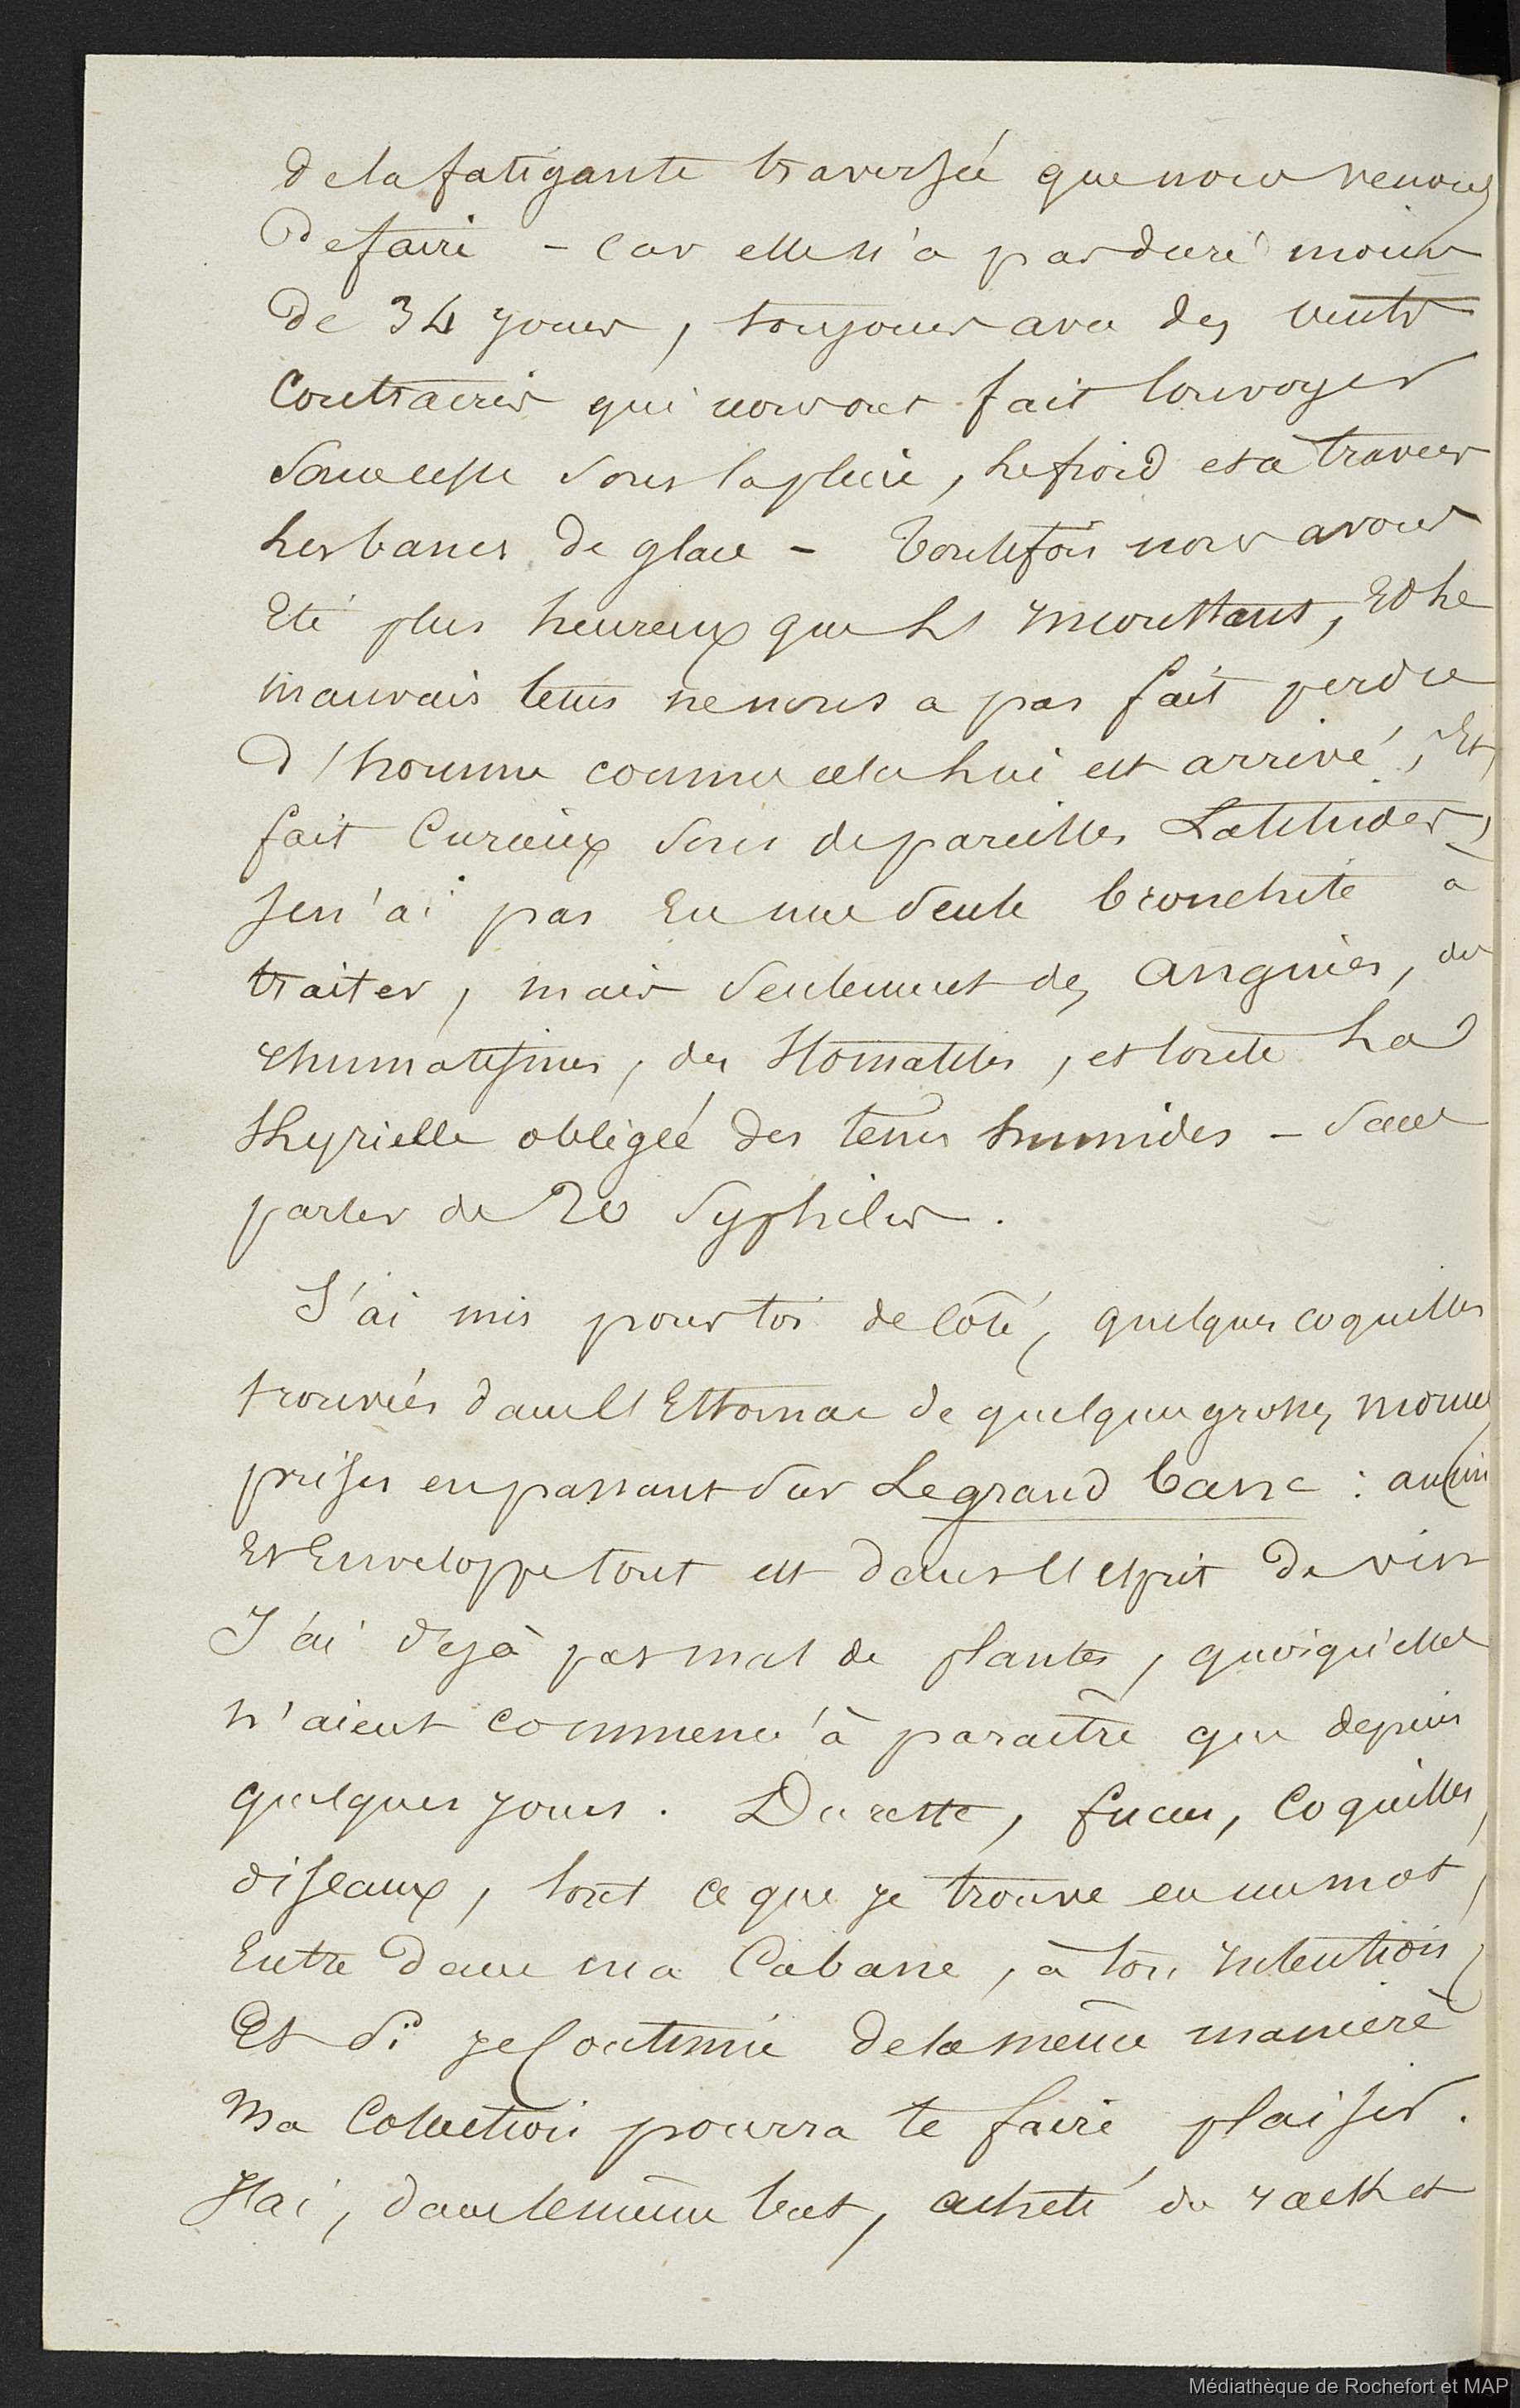 de la fatigante traversée que nous venons
de faire - car elle n'a pas duré moins
de 34 jours, toujours avec des vents
contraires qui nous ont fait louvoyer
sans cesse sous la pluie, le froid et à travers
les bancs de glace - Toutefois nous avons
été plus heureux que le
mauvais tems ne nous a pas fait perdre
d'homme comme cela lui est arrivé, Et,
fait curieux sous de pareilles Latitudes,
je n'ai pas eu une seule bronchite à
traiter, mais seulement des angines, des
rhumatismes, des stomatites, et toute la
Kyrielle obligée des tems humides - sans
parler de 20 syphilis.
J'ai mis pour toi de côté, quelques coquilles
trouvées dans l'Estomac de quelques grosses morues
prises en passant sur Le grand banc :
Et Enveloppe tout est dans l'esprit de vin
J'ai déjà pas mal de plantes, quoiqu'elles
n'aient commencé à paraître que depuis
quelques jours. Du reste, fucus, Coquilles,
oiseaux, tout ce que je trouve en un mot,
Entre dans ma Cabane, à ton intention,
Et si je Continue de la même manière
Ma Collection pourra te faire plaisir.
J'ai, dans le même but, acheté du